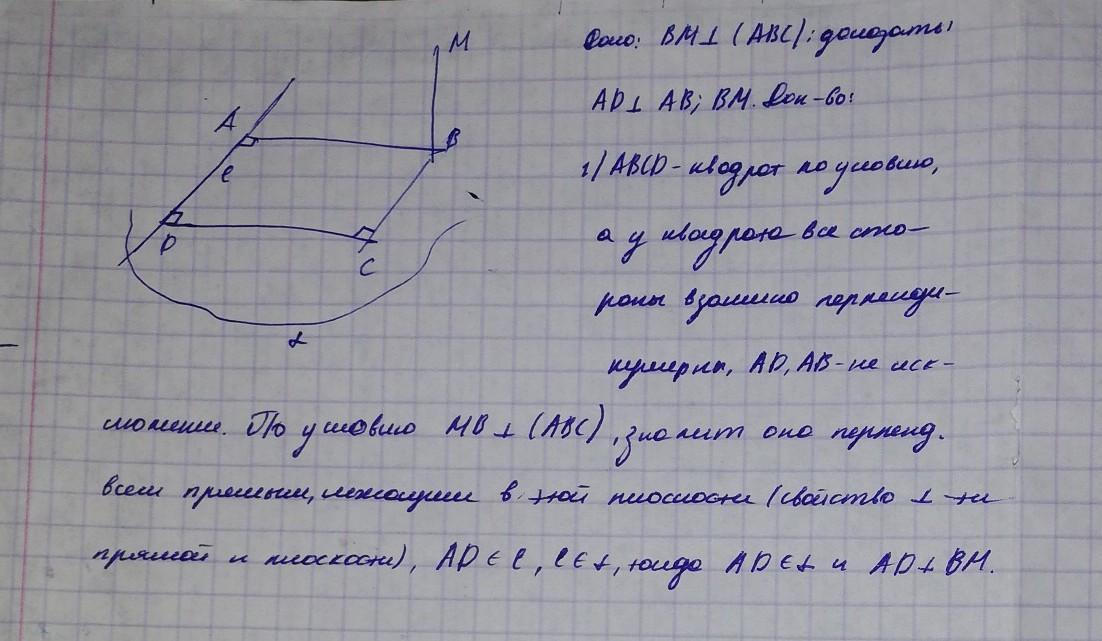 M
Дано: BM⊥ (ABC); доказать:
A
AD⊥ AB; BM. Док-во:
B
e
1) ABCD - квадрат по условию,
D
C
а у квадрата все сто-
роны взаимно перпенди-
α
кулярны, AD, AB - не иск-
лючение. По условию MB ⊥ (ABC), значит она перпенд.
всем прямым, лежащим в этой плоскости (свойство ⊥-ти
прямой и плоскости), AD ∈ e, e ∈ α, тогда AD ∈ α и AD ⊥ BM.